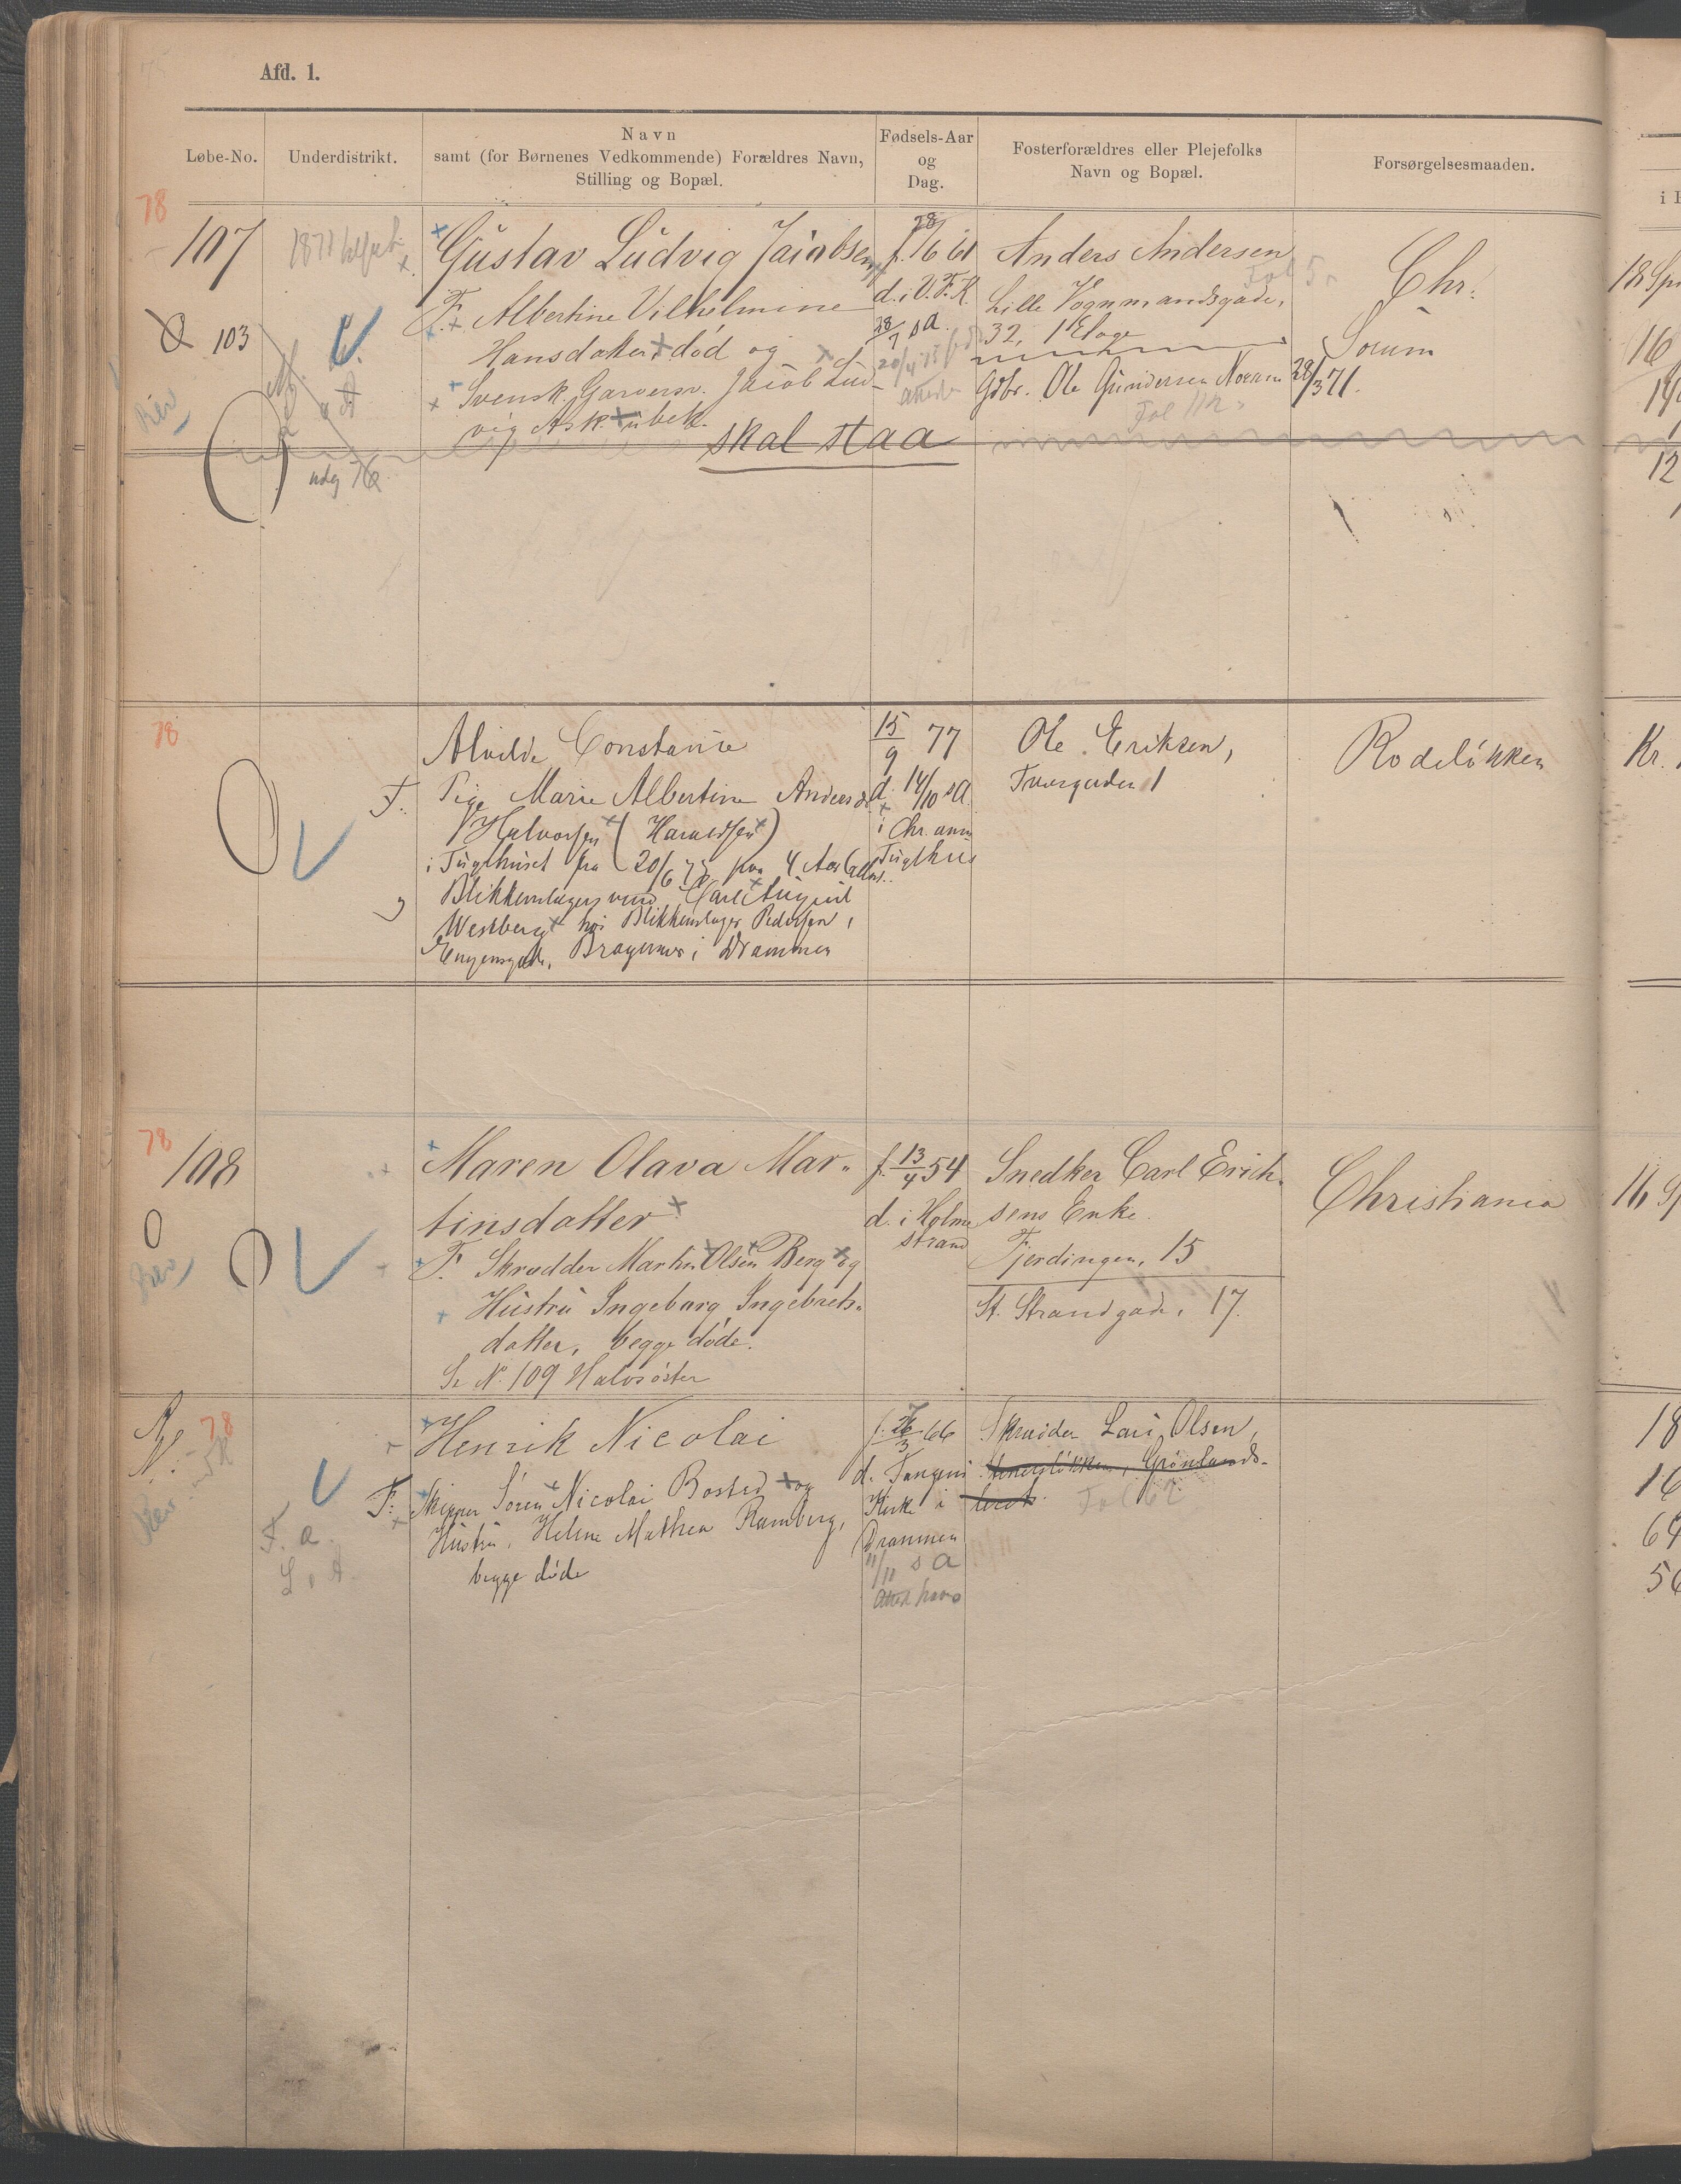 Afd. 1.
Løbe-No.
Underdistrikt.
Navn
samt (for Børnenes Vedkommende) Forældres Navn,
Stilling og Bopæl.
Fødsels-Aar
og
Dag.
Fosterforældres eller Plejefolks
Navn og Bopæl.
Forsørgelsesmaaden.
78
107
103
Rev
udg
Gustav Ludvig Jacobsen
F. Albertine Vilhelmine
Hansdatter, død og
Svensk Garversv. Jacob Lud-
vig Ask ubek.
skal staa
f. 28/6 61
d. i V. F. K.
28/7 s A.
Anders Andersen
Lille Vognmandsgade,
32, 1 Etage
Gdbr. Ole Gundersen
28/3 71.
Fol 112
Chr.
Sørum
78
Alvilde Constance
F. Pige Marie Albertine Andersd
Halvorsen (Haraldsen)
i Tugthuset fra 20/6 paa 4 Aar
og Blikkenslagersvend Carl August
Westberg hos Blikkenslager Pedersen,
Engensgade, Bragernes i Drammen
15/9 77
d. 14/10 s A.
i Chr. ann
Tugthus
Ole Eriksen,
Tvergaden 1
Rodeløkken
Kr.
78
108
Rev
Maren Olava Mar-
tinsdatter
F. Skrædder Martin Olsen Berg og
Hustru Ingeborg Ingebrets-
datter, begge døde.
Se No. 109 Halvsøster
f. 13/4 54
d. i Holme
strand
Snedker Carl Erich-
sens Enke
Fjerdingen, 15
St. Strandgade, 17.
Christiania
78
Rev
F. a.
Henrik Nicolai
F. Skipper Søren Nicolai Bosted og
Hustru, Helene Mathea Ramberg,
begge døde
f. 26/3 66
d. Tangens
Kirke i
Drammen
11/11 s A
Skrædder Lars Olsen,
Grønlands-
leret.
Fol 62